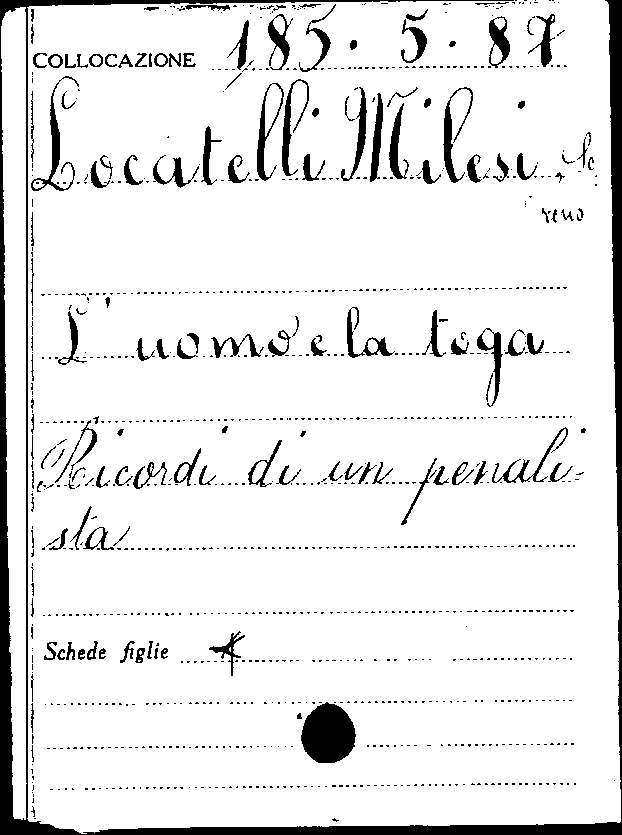 COLLOCAZIONE 185.5.87
Locatelli Milesi, Se
reno
L'uomo e la toga
Ricordi di un penali-
sta
Schede figlie